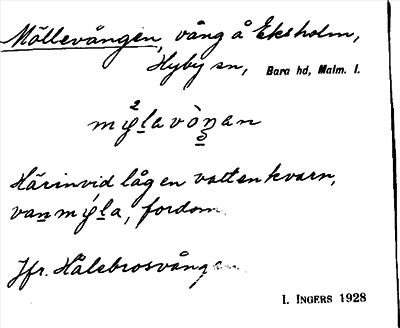 Möllevången, vång å Eksholm,
Hyby sn, Bara hd, Malm. l.
2
mýlavòŋan
Härinvid låg en vattenkvarn,
vanmýla, fordom.
Jfr. Hålebrosvången
I. INGERS 1928